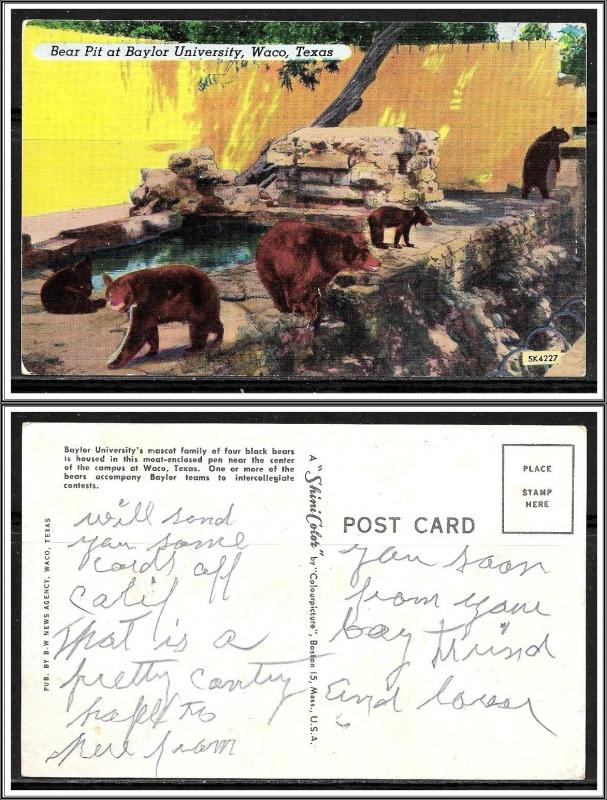 Bear Pit at Baylor University, Waco, Texas
SK4227
Baylor University's mascot family of four black bears
is housed in this moat-enclosed pen near the center
of the campus at Waco, Texas. One or more of the
bears accompany Baylor teams to intercollegiate
contests.
PUB. BY B-W NEWS AGENCY, WACO, TEXAS
A "ShiniColor" by "Colourpicture", Boston 15, Mass., U.S.A.
POST CARD
PLACE
STAMP
HERE
will send
you some
cards off
Calif
That is a
pretty
here from
you soon
from your
boy frind
and lover